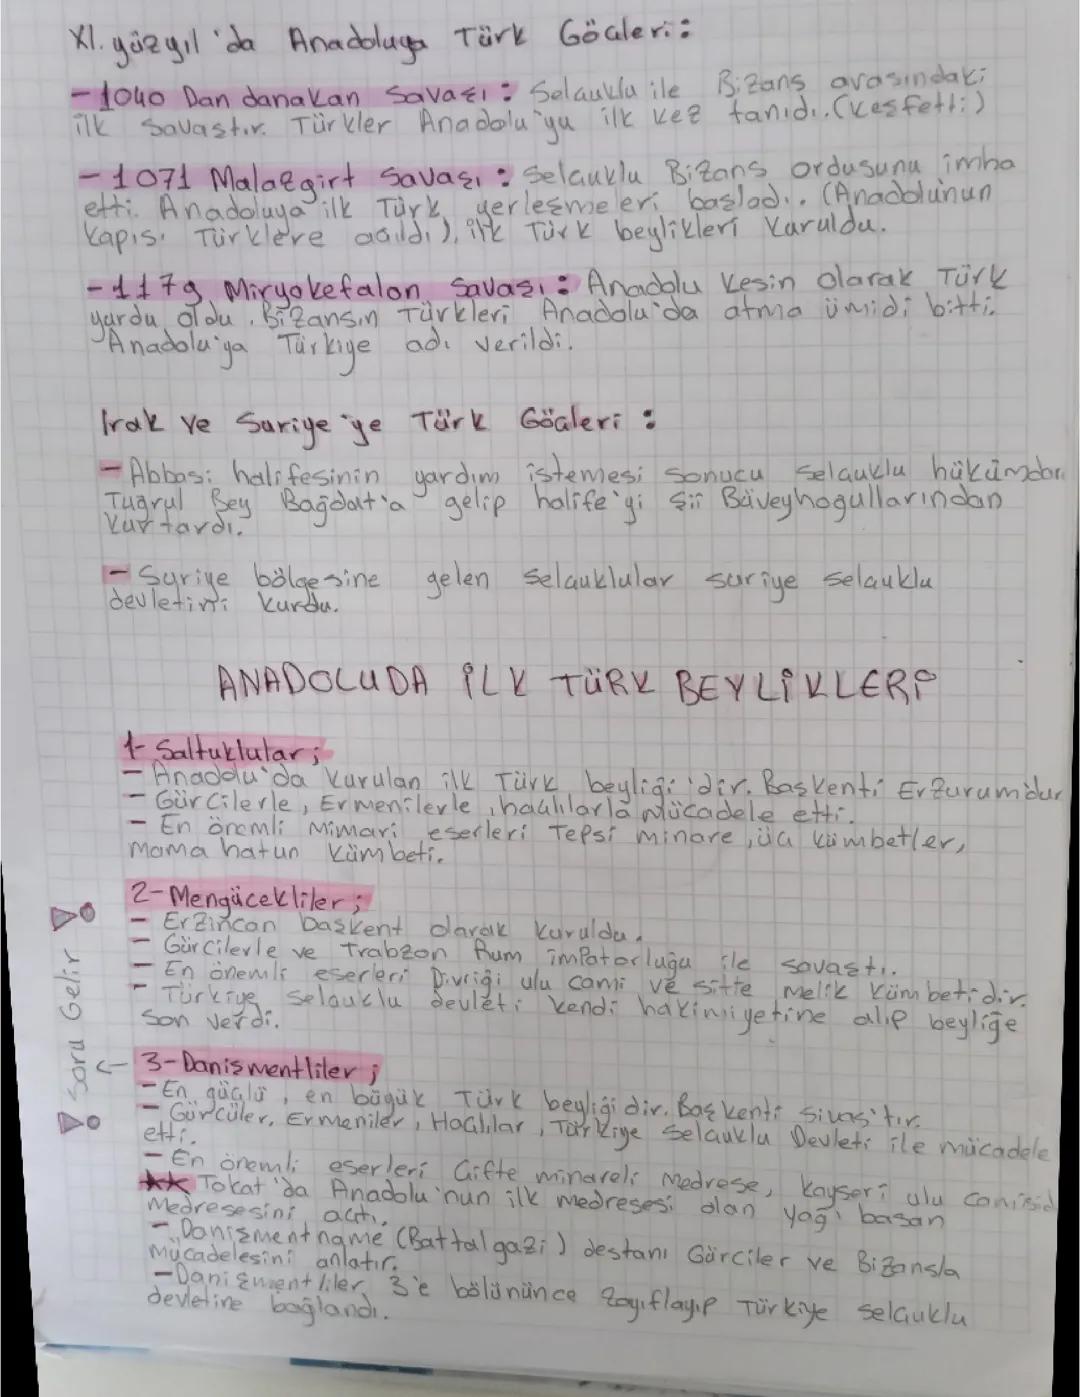 XI. yüzyıl'da Anadoluya Türk Göçleri:
- 1040 Dandanakan Savaşı: Selçuklu ile Bizans arasındaki
ilk savaştır. Türkler Anadolu'yu ilk kez tanıdı. (keşfetti)
- 1071 Malazgirt Savaşı: Selçuklu Bizans ordusunu imha
etti. Anadoluya ilk Türk yerleşmeleri başladı. (Anadolunun
kapısı Türklere açıldı), ilk Türk beylikleri kuruldu.
- 1179 Miryokefalon Savaşı: Anadolu kesin olarak Türk
yurdu oldu. Bizansın Türkleri Anadolu'da atma ümidi bitti.
Anadolu'ya Türkiye adı verildi.
Irak ve Suriye'ye Türk Göçleri:
- Abbasi halifesinin yardım istemesi sonucu selçuklu hükümdarı
Tuğrul Bey Bağdat'a gelip halife'yi şii Büveyhoğullarından
kurtardı.
- Suriye bölgesine gelen selçuklular suriye selçuklu
devletini kurdu.
ANADOLUDA İLK TÜRK BEYLİKLERİ
1- Saltuklular;
- Anadolu'da kurulan ilk Türk beyliği'dir. Başkenti Erzurum'dur
- Gürcilerle, Ermenilerle, haçlılarla mücadele etti.
- En önemli mimari eserleri Tepsi minare, üç kümbetler,
mama hatun kümbeti.
2- Mengücekliler;
- Erzincan başkent olarak kuruldu.
- Gürcilerle ve Trabzon Rum impatorluğu ile savaştı.
- En önemli eserleri Divriği ulu cami ve sitte melik kümbetidir.
- Türkiye selçuklu devleti kendi hakimiyetine alıp beyliğe
son verdi.
Soru Gelir
← 3- Danişmentliler;
- En güçlü, en büyük Türk beyliğidir. Başkenti sivas'tır.
- Gürcüler, Ermeniler, Haçlılar, Türkiye selçuklu Devleti ile mücadele
etti.
- En önemli eserleri Çifte minareli medrese, kayseri ulu camisid
** Tokat'da Anadolu'nun ilk medresesi olan yağı basan
medresesini açtı.
- Danişmentname (Battalgazi) destanı Gürciler ve Bizansla
mücadelesini anlatır.
- Danişmentliler 3'e bölününce zayıflayıp Türkiye selçuklu
devletine bağlandı.